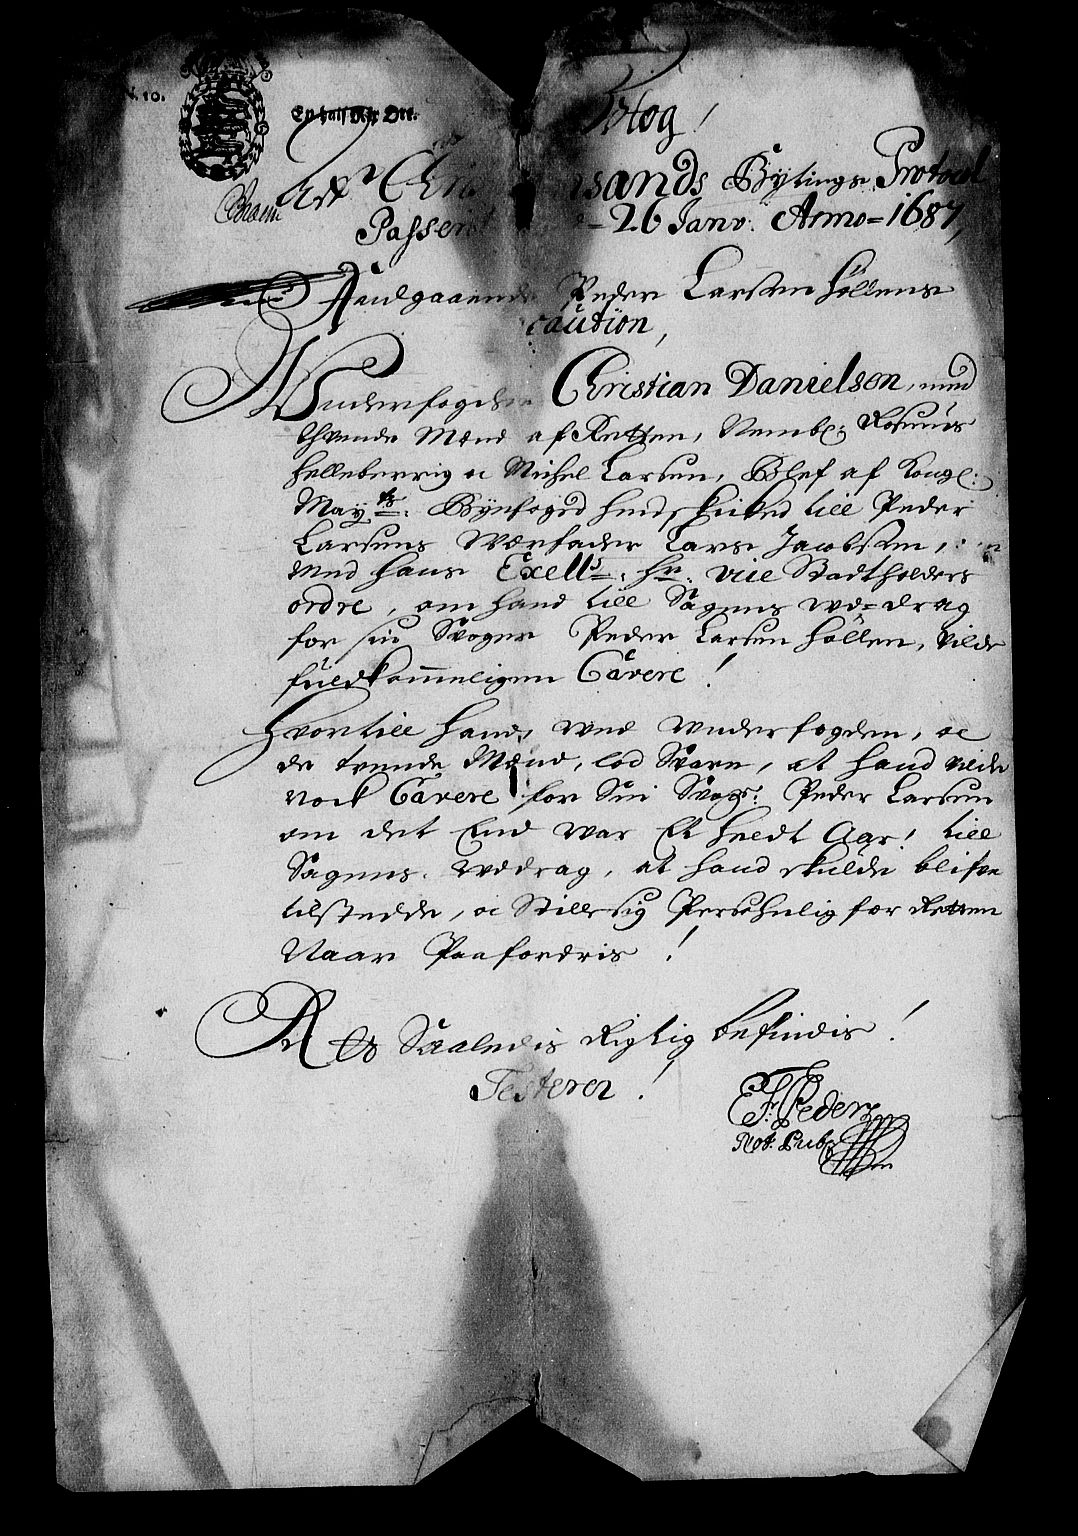 N. 10.
En half Rix Ort.
Vdtog!
Aff Christiansands Bytings Protocol
Passerit 26 Janv: Anno 1687,
Andgaaende Peder Larsen Hollens
caution,
Underfogden Christian Danielsen, med
thvende Mænd af Retten, Nembl: Rasmus
Helleberrig oc Michel Larsen, Blef af Kongl:
Mayts: Byefoged hendskicked till Peder
Larsens Værfader Lars Jacobsen,
med hans Exells: hr: vice Stadtholders
ordre, om hand till Sagens wd=drag
for sin Svoger Peder Larsen Hollen, vilde
fuldkommeligen Cavere!
Hvortill hand, ved Underfogden, oc
de tvende Mænd, lod Svare, at hand vilde
nock Cavere for Sin Svogr: Peder Larsen
om det End war Et heelt Aar! till
Sagens wddrag, at hand skulde blifve
tilstedde, oc Stille sig Persohnlig for Retten
Naar Paafordris!
At det Saaledis Rigtig befindis!
Testerer!
E F: Peders
Not. Publ: